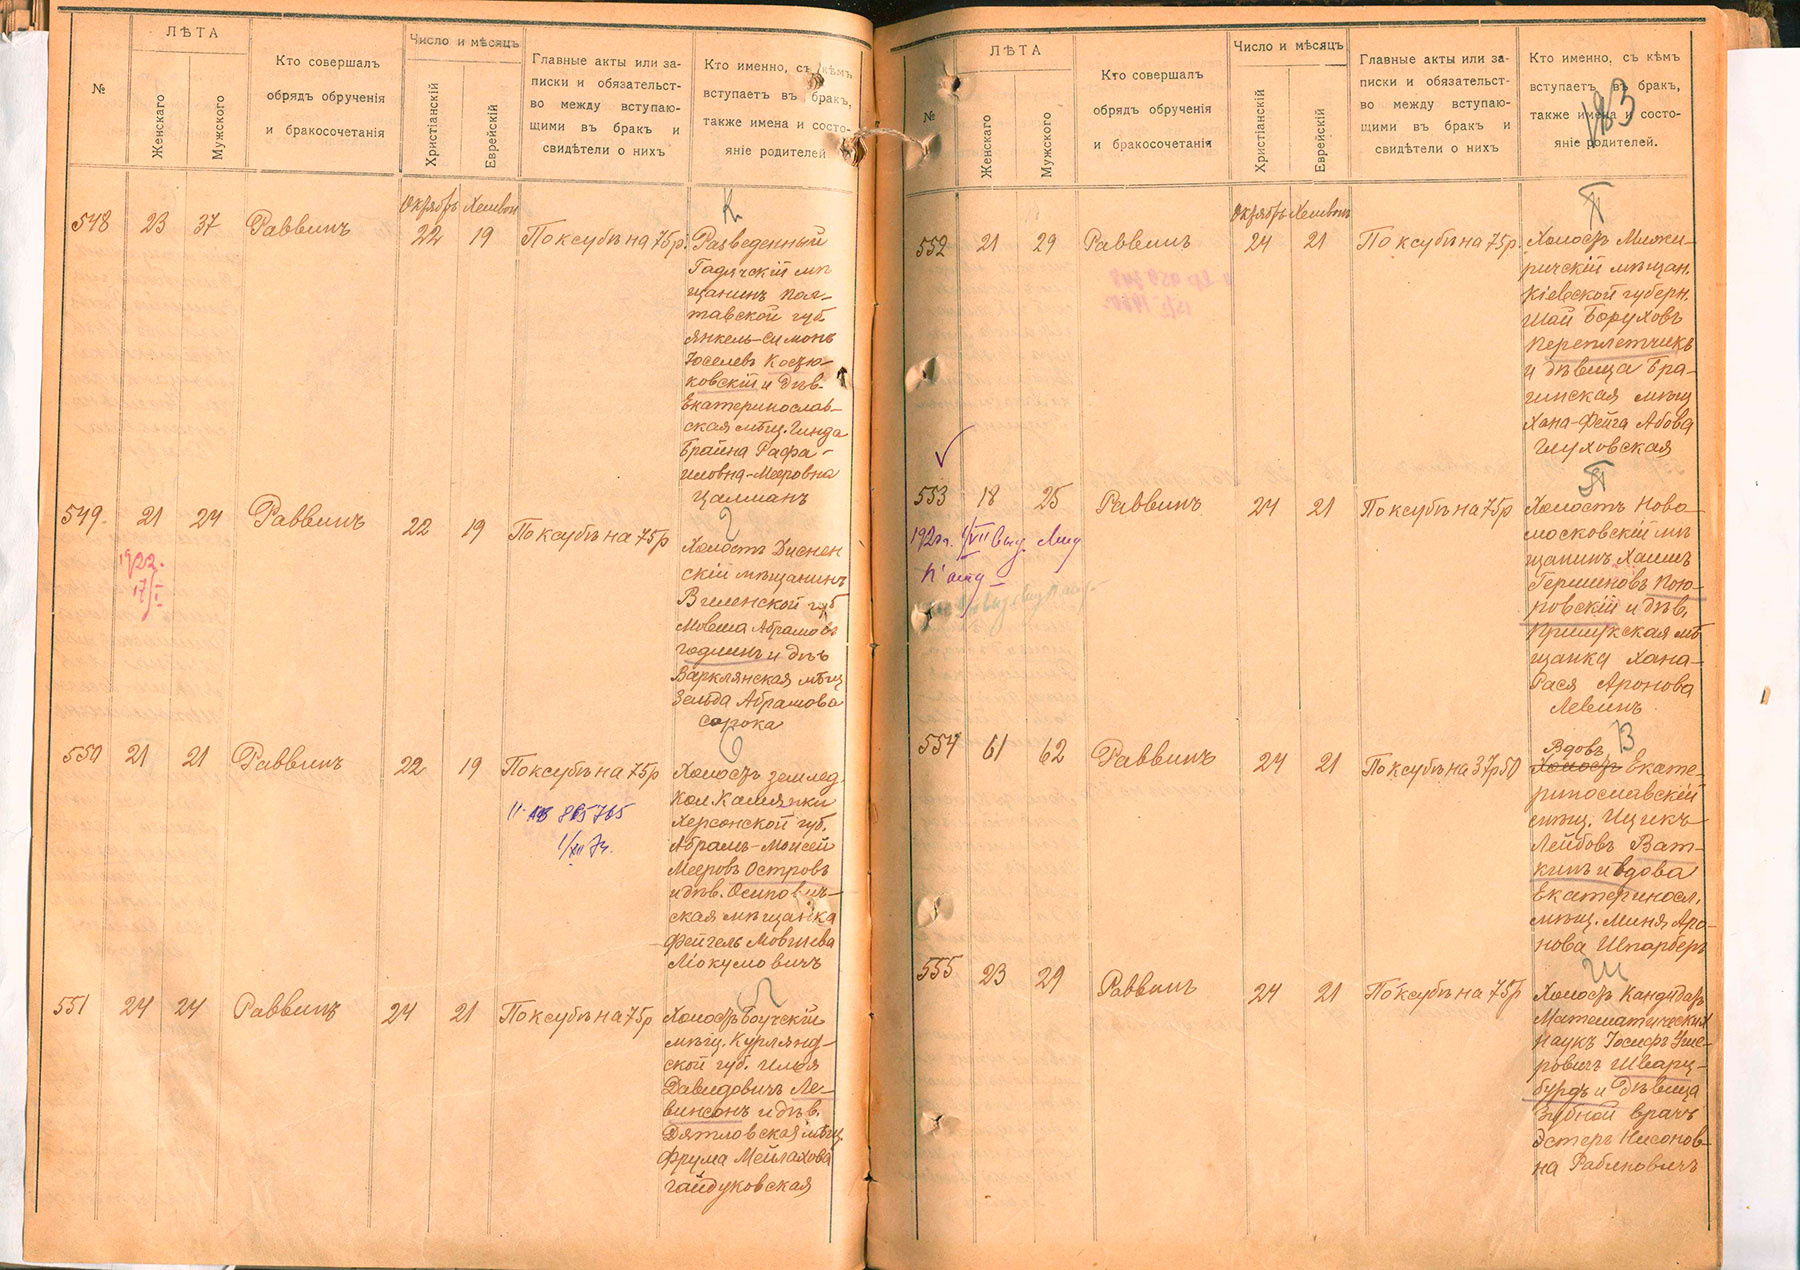 №
ЛѢТА
Женскаго
Мужского
Кто совершалъ
обрядъ обрученія
и бракосочетанія
Число и мѣсяцъ
Христіанскій
Еврейскій
Главные акты или за-
писки и обязательст-
во между вступаю-
щими въ бракъ и
свидѣтели о нихъ
Кто именно, съ кѣмъ
вступаетъ въ бракъ,
также имена и состо-
яніе родителей
Октябрь Хешвон
К
548 23 37 Раввинъ 22 19 По ксубѣ на 75р. Разведенный
Гадячскій мѣ
щанинъ Пол-
тавской губ.
Янкель-Симонъ
Іоселевъ Костю-
ковскій и дѣв.
Екатеринослав-
ская мѣщ. Гинда
Брайна Рафа-
иловна-Мееровна
Цалманъ
Г
549. 21 24 Раввинъ 22 19 По ксубѣ на 75р Холостъ Диснен
скій мѣщанинъ
Виленской губ
Мовша Абрамовъ
Годлинъ и дѣв
Варклянская мѣщ
Зельда Абрамова
Сорока
1922.
17/I
О
550 21 21 Раввинъ 22 19 По ксубѣ на 75р Холостъ землед.
Кол. Камянки
Херсонской губ.
Абрамъ-Моисей
Мееровъ Островъ
и дѣв. Осипович-
ская мѣщанка
Фейгель Мовшева
Ліокумовичъ
865765
Л
551 24 24 Раввинъ 24 21 По ксубѣ на 75р Холостъ Боучскій
мѣщ. Курлянд-
ской губ. Илья
Давидовичъ Ле-
винсонъ и дѣв.
Дятловская мѣщ
Фрума Мейлахова
Гайдуковская
№
ЛѢТА
Женскаго
Мужского
Кто совершалъ
обрядъ обрученія
и бракосочетанія
Число и мѣсяцъ
Христіанскій
Еврейскій
Главные акты или за-
писки и обязательст-
во между вступаю-
щими въ бракъ и
свидѣтели о нихъ
Кто именно, съ кѣмъ
вступаетъ въ бракъ,
также имена и состо-
яніе родителей.
163
Октябрь Хешвонъ
П
552 21 29 Раввинъ 24 21 По ксубѣ на 75р. Холостъ Межи-
ричскій мѣщан.
Кіевской губерн.
Шай Боруховъ
Переплетчикъ
и дѣвица Бра-
гинская мѣщ
Хана-Фейга Абова
Глуховская
П
553 18 25 Раввинъ 24 21 По ксубѣ на 75р Холостъ Ново-
московскій мѣ
щанинъ Хаимъ
Гершеновъ Пою-
ровскій и дѣв.
Прилукская мѣ
щанка Хана-
Рася Аронова
Левинъ
В
554 61 62 Раввинъ 24 21 По ксубѣ на 37р50 Вдовъ
Холостъ Екате-
ринославскій
мѣщ. Ицикъ
Лейбовъ Ват-
кинъ и вдова
Екатериносл.
мѣщ. Миня Аро-
нова Шпарберъ
Ш
555 23 29 Раввинъ 24 21 По ксубѣ на 75р Холостъ Кандидатъ
Математическихъ
наукъ Іосифъ Уше-
ровичъ Шварц-
бурдъ и дѣвица
Зубной врачъ
Эстеръ Нисонов-
на Рабиновичъ